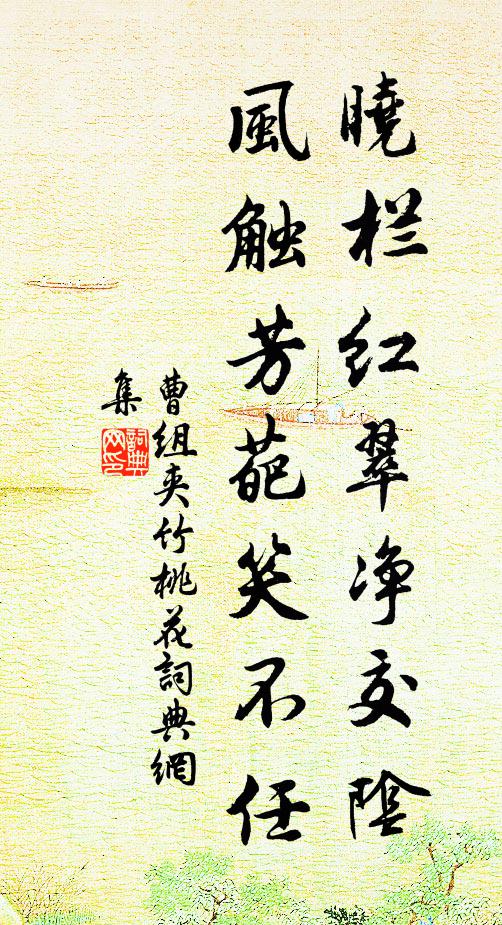 曉栏紅翠净交陰
風触芳葩笑不任
曹组夹竹桃花詞典網
集
詞典